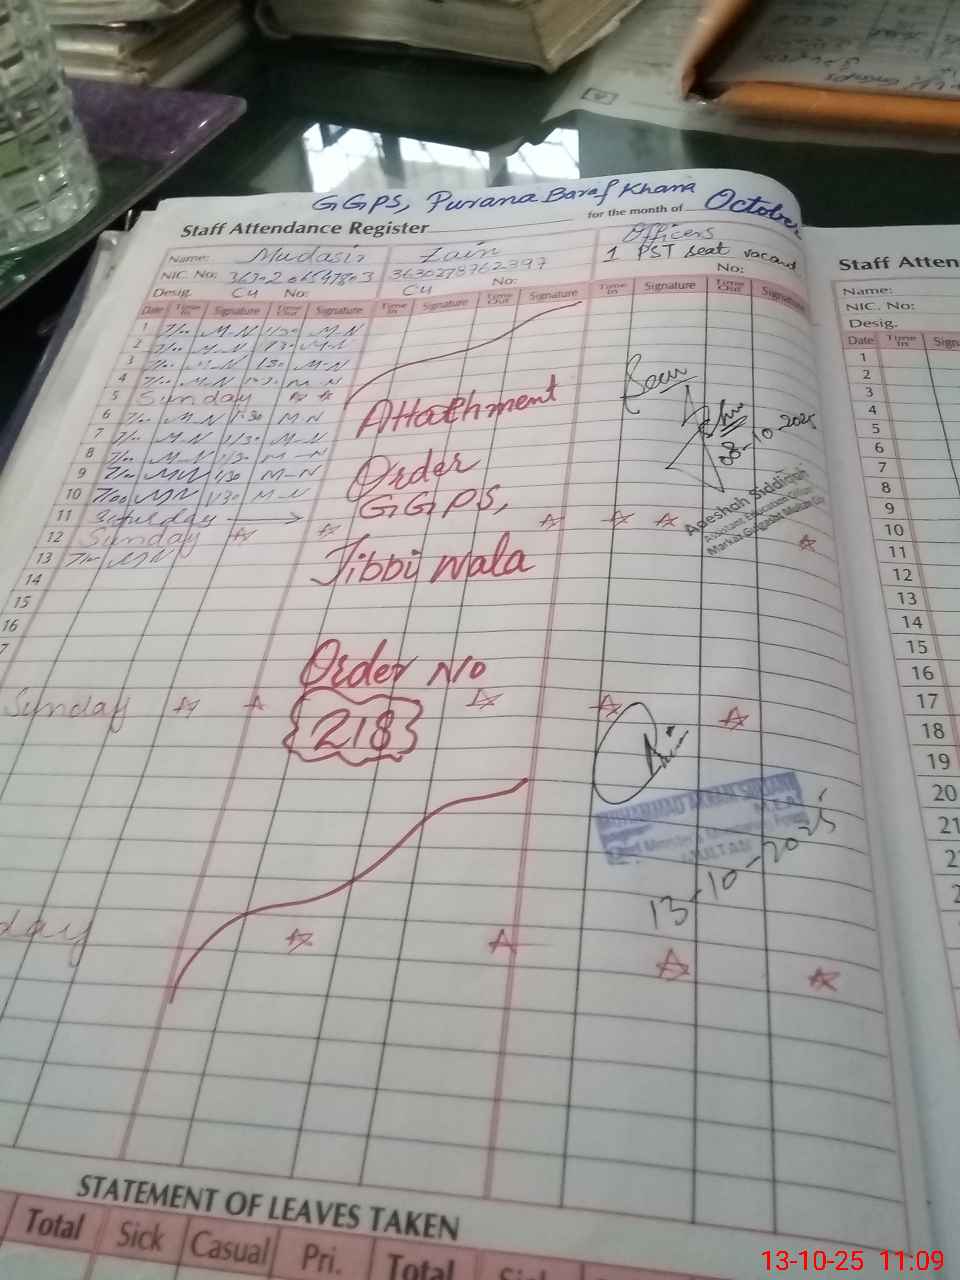 GGPS, Purana Baraf Khana
Staff Attendance Register for the month of October
Name: Mudasir Zain Officers
NIC. No: 3630278762397 1 PST seat vacant
Desig. C4 No: C4 No: No:
Date Time In Signature Time Out Signature Time In Signature Time Out Signature Time In Signature Time Out Signature
1 7/00 M-N 1/30 M-N
2 7/00 M-N 1/30 M-N
3 7/00 M-N 1/30 M-N
4 7/00 M-N 1/30 M-N
5 Sunday
6 7/00 M-N 1/30 M-N
7 7/00 M-N 1/30 M-N
8 7/00 M-N 1/30 M-N
9 7/00 MN 1/30 M-N
10 7/00 MN 1/30 M-N
11 Saturday
12 Sunday
13 7/00 MN
14
15
16
7
Attachment
Order
GGPS,
Jibbi wala
Order No
218
Sunday
day
Seen
08-10-2025
Aaeshah Siddiqui
Assistant Education Officer
Markaz Gulgasht Multan City
MUHAMMAD AKRAM
MULTAN
13-10-2025
STATEMENT OF LEAVES TAKEN
Total Sick Casual Pri. Total Sick
Staff Atten
Name:
NIC. No:
Desig.
Date Time In Signa
1
2
3
4
5
6
7
8
9
10
11
12
13
14
15
16
17
18
19
20
21
2
2
13-10-25 11:09